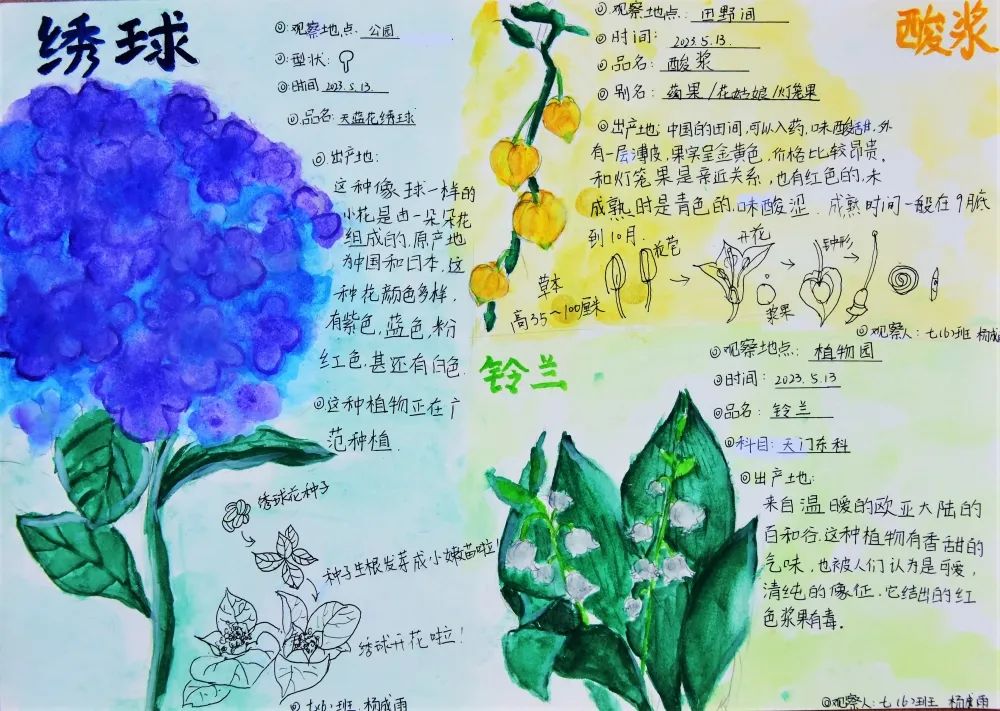 绣球
◎观察地点: 公园
◎型状:
◎时间 2023.5.13
◎品名: 天蓝花绣球
◎出产地:
这种像球一样的
小花是由一朵朵花
组成的.原产地
为中国和日本.这
种花颜色多样,
有紫色,蓝色,粉
红色.甚还有白色.
◎这种植物正在广
范种植.
绣球花种子
种子生根发芽成小嫩苗啦!
绣球开花啦!
七(6)班 杨成雨
酸浆
◎观察地点: 田野间
◎时间: 2023.5.13.
◎品名: 酸浆
◎别名: 菇果/花姑娘/灯笼果
◎出产地: 中国的田间,可以入药,味酸甜.外
有一层薄皮,果实呈金黄色,价格比较昂贵.
和灯笼果是亲近关系,也有红色的,未
成熟时是青色的,味酸涩.成熟时间一般在9月底
到10月.
草本
高35~100厘米
花苞
开花
浆果
钟形
◎观察人: 七(6)班 杨成
铃兰
◎观察地点: 植物园
◎时间: 2023.5.13
◎品名: 铃兰
◎科目: 天门东科
◎出产地:
来自温暖的欧亚大陆的
百和谷.这种植物有香甜的
气味,也被人们认为是可爱,
清纯的像征.它结出的红
色浆果有毒.
◎观察人: 七(6)班 杨成雨